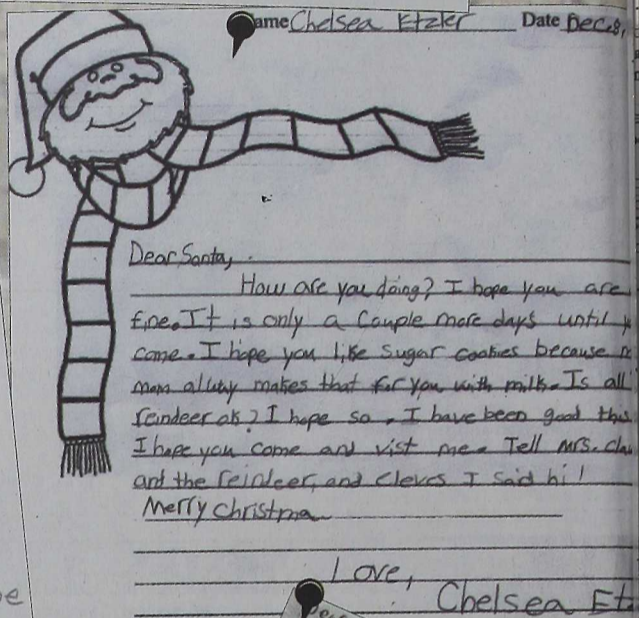 ame Chelsea Etzler Date Dec.8,
Dear Santa,
How are you doing? I hope you are
fine. It is only a couple more days until y
come. I hope you like sugar cookies because m
mom allway makes that for you with milk. Is all
reindeer ok? I hope so. I have been good this
I hope you come and vist me. Tell mrs. cla
and the reindeer, and cleves I said hi!
Merry christma
Love,
Chelsea Et